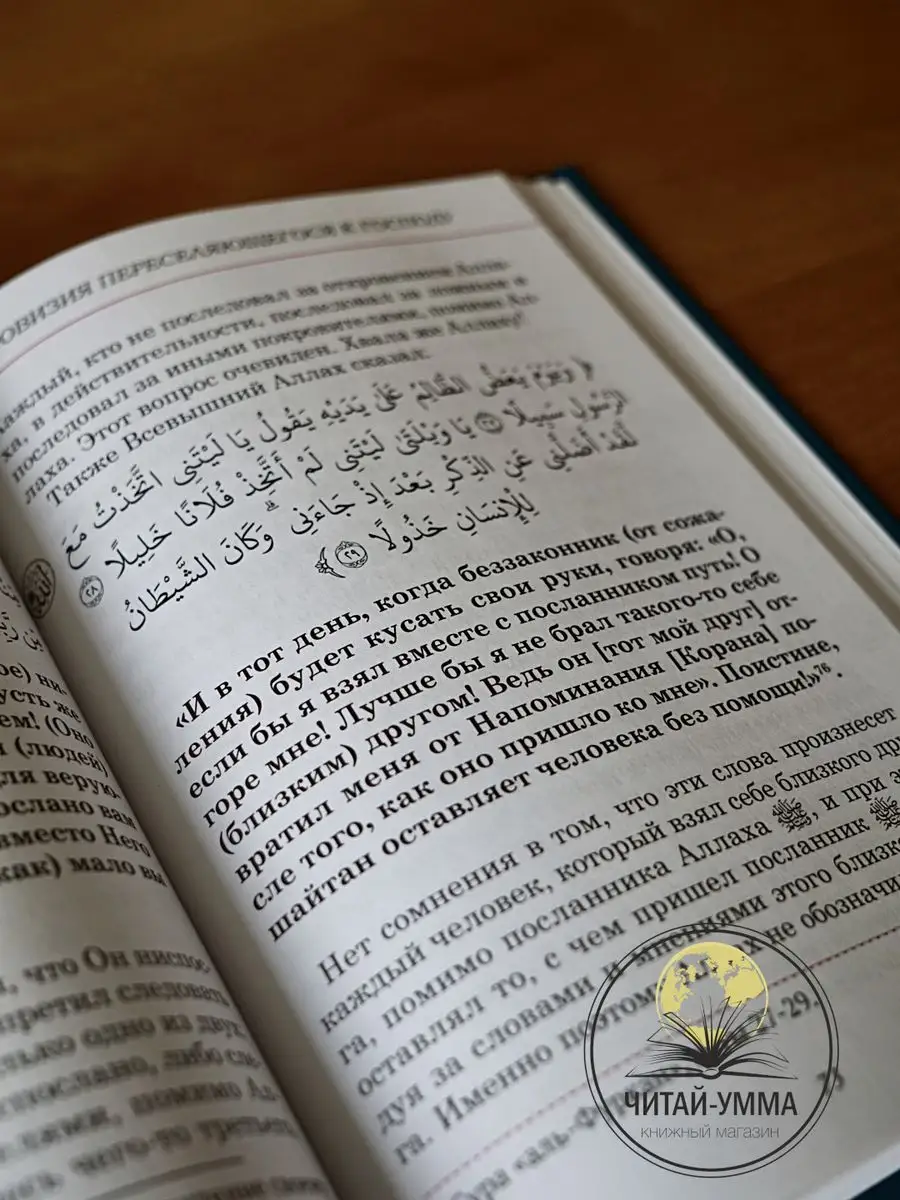 ОВИЗИЯ ПЕРЕСЕЛЯЮЩЕГОСЯ К ГОСПОДУ
каждый, кто не последовал за откровением Алла-
ха, в действительности, последовал за ложным и
последовал за иными покровителями, помимо Ал-
лаха. Этот вопрос очевиден. Хвала же Аллаху!
Также Всевышний Аллах сказал:
﴿ وَيَوْمَ يَعَضُّ الظَّالِمُ عَلَىٰ يَدَيْهِ يَقُولُ يَا لَيْتَنِي اتَّخَذْتُ مَعَ
الرَّسُولِ سَبِيلًا ٢٧ يَا وَيْلَتَىٰ لَيْتَنِي لَمْ أَتَّخِذْ فُلَانًا خَلِيلًا ٢٨
لَقَدْ أَضَلَّنِي عَنِ الذِّكْرِ بَعْدَ إِذْ جَاءَنِي ۗ وَكَانَ الشَّيْطَانُ
لِلْإِنسَانِ خَذُولًا ٢٩ ﴾
«И в тот день, когда беззаконник (от сожа-
ления) будет кусать свои руки, говоря: «О,
если бы я взял вместе с посланником путь! О
горе мне! Лучше бы я не брал такого-то себе
(близким) другом! Ведь он [тот мой друг] от-
вратил меня от Напоминания [Корана] по-
сле того, как оно пришло ко мне». Поистине,
шайтан оставляет человека без помощи!»⁷⁶.
Нет сомнения в том, что эти слова произнесет
каждый человек, который взял себе близкого дру
га, помимо посланника Аллаха ﷺ, и при э
оставлял то, с чем пришел посланник ﷺ
дуя за словами и мнениями этого близко
га. Именно поэтому Аллах не обозначи
Сура «аль-Фуркан» -29.
ое) ни-
усть же
ем! (Оно
и (людей)
для верую-
ослано вам
вместо Него
как) мало вы
, что Он ниспос-
претил следовать
олько одно из двух:
испослано, либо сле-
помимо Ал-
чего-то третье
ЧИТАЙ-УММА
КНИЖНЫЙ МАГАЗИН